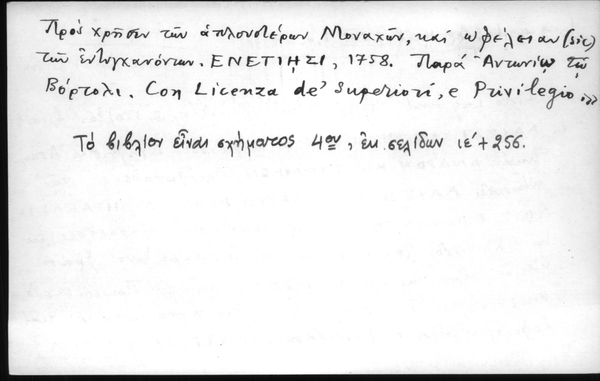 Πρός χρῆσιν τῶν ἁπλουστέρων Μοναχῶν, καί ὠφέλειαν (sic)
τῶν ἐντυγχανόντων. ΕΝΕΤΙΗΣΙ, 1758. Παρά Ἀντωνίῳ τῷ
Βόρτολι. Con Licenza de' Superiori, e Privilegio »»
Τό βιβλίον εἶναι σχήματος 4ου, ἐκ σελίδων ιε΄+256.